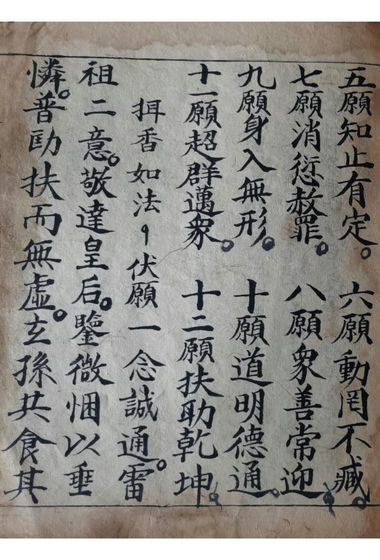 五願知止有定。六願動罔不臧。
七願消愆赦罪。八願衆善常迎。
九願身入無形。十願道明德通。
十一願超群邁衆。十二願扶助乾坤。
挕香如法伏願一念誠通。雷
祖二意。敬達皇后。鑒微悃以垂
憐。普劻扶而無虛。玄孫共食其